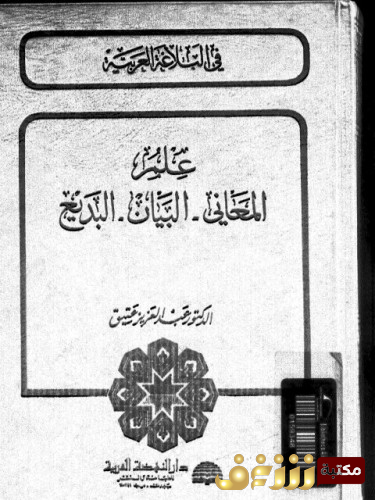 في البلاغة العربية
علم
المعاني - البيان - البديع
الدكتور عبد العزيز عتيق
دار النهضة العربية
مكتبة